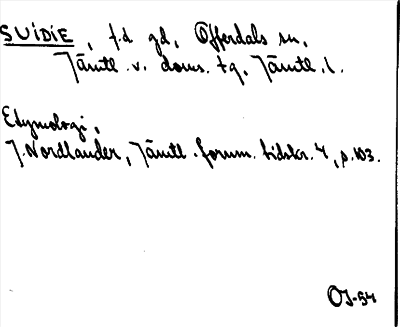 SUIDIE, f.d gd, Offerdals sn,
Jämtl. v. doms. tg, Jämtl. l.
Etymologi,
J. Nordlander, Jämtl. fornm. tidskr. 4, s. 103.
OJ-54